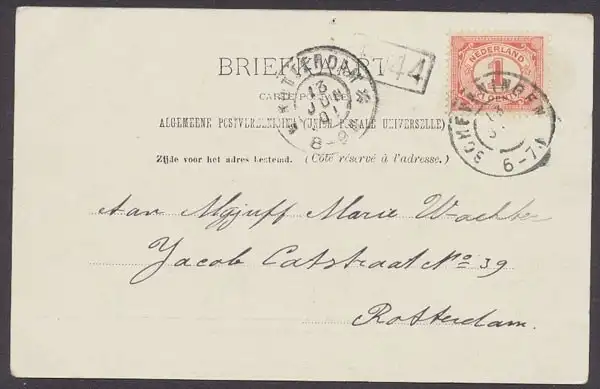 BRIEFKAART
CARTE POSTALE
ALGEMEENE POSTVEREENIGING (UNION POSTALE UNIVERSELLE)
Zijde voor het adres bestemd. (Côté réservé à l'adresse.)
NEDERLAND
1
CENT
ROTTERDAM
13
JUN
01
8-9
44
SCHEVENINGEN
13
6-7
Aan Mejuff Marie Wachter
Jacob Catsstraat No 39
Rotterdam.